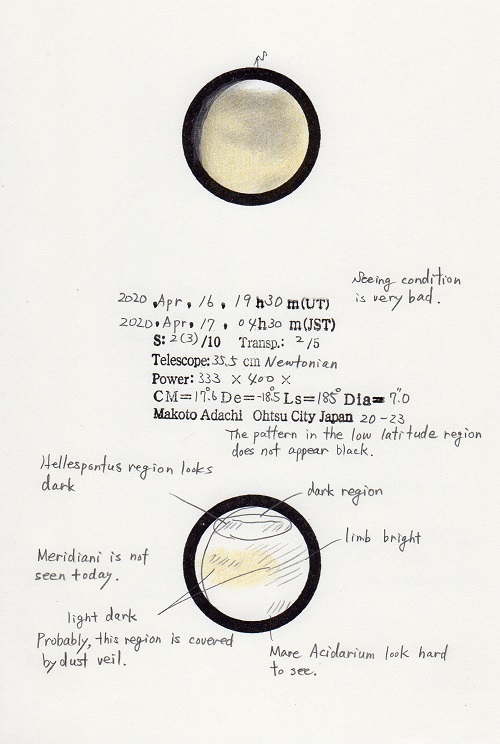 Seeing condition
is very bad.
2020, Apr, 16, 19h30m(UT)
2020, Apr, 17, 04h30m(JST)
S: 2(3)/10 Transp.: 2/5
Telescope: 35.5 cm Newtonian
Power: 333 × 400 ×
CM=17.°6 De=-18.°5 Ls=185° Dia=7."0
Makoto Adachi Ohtsu City Japan 20-23
The pattern in the low latitude region
does not appear black.
Hellespontus region looks
dark
dark region
limb bright
Meridiani is not
seen today.
light dark
Probably, this region is covered
by dust veil.
Mare Acidarium look hard
to see.